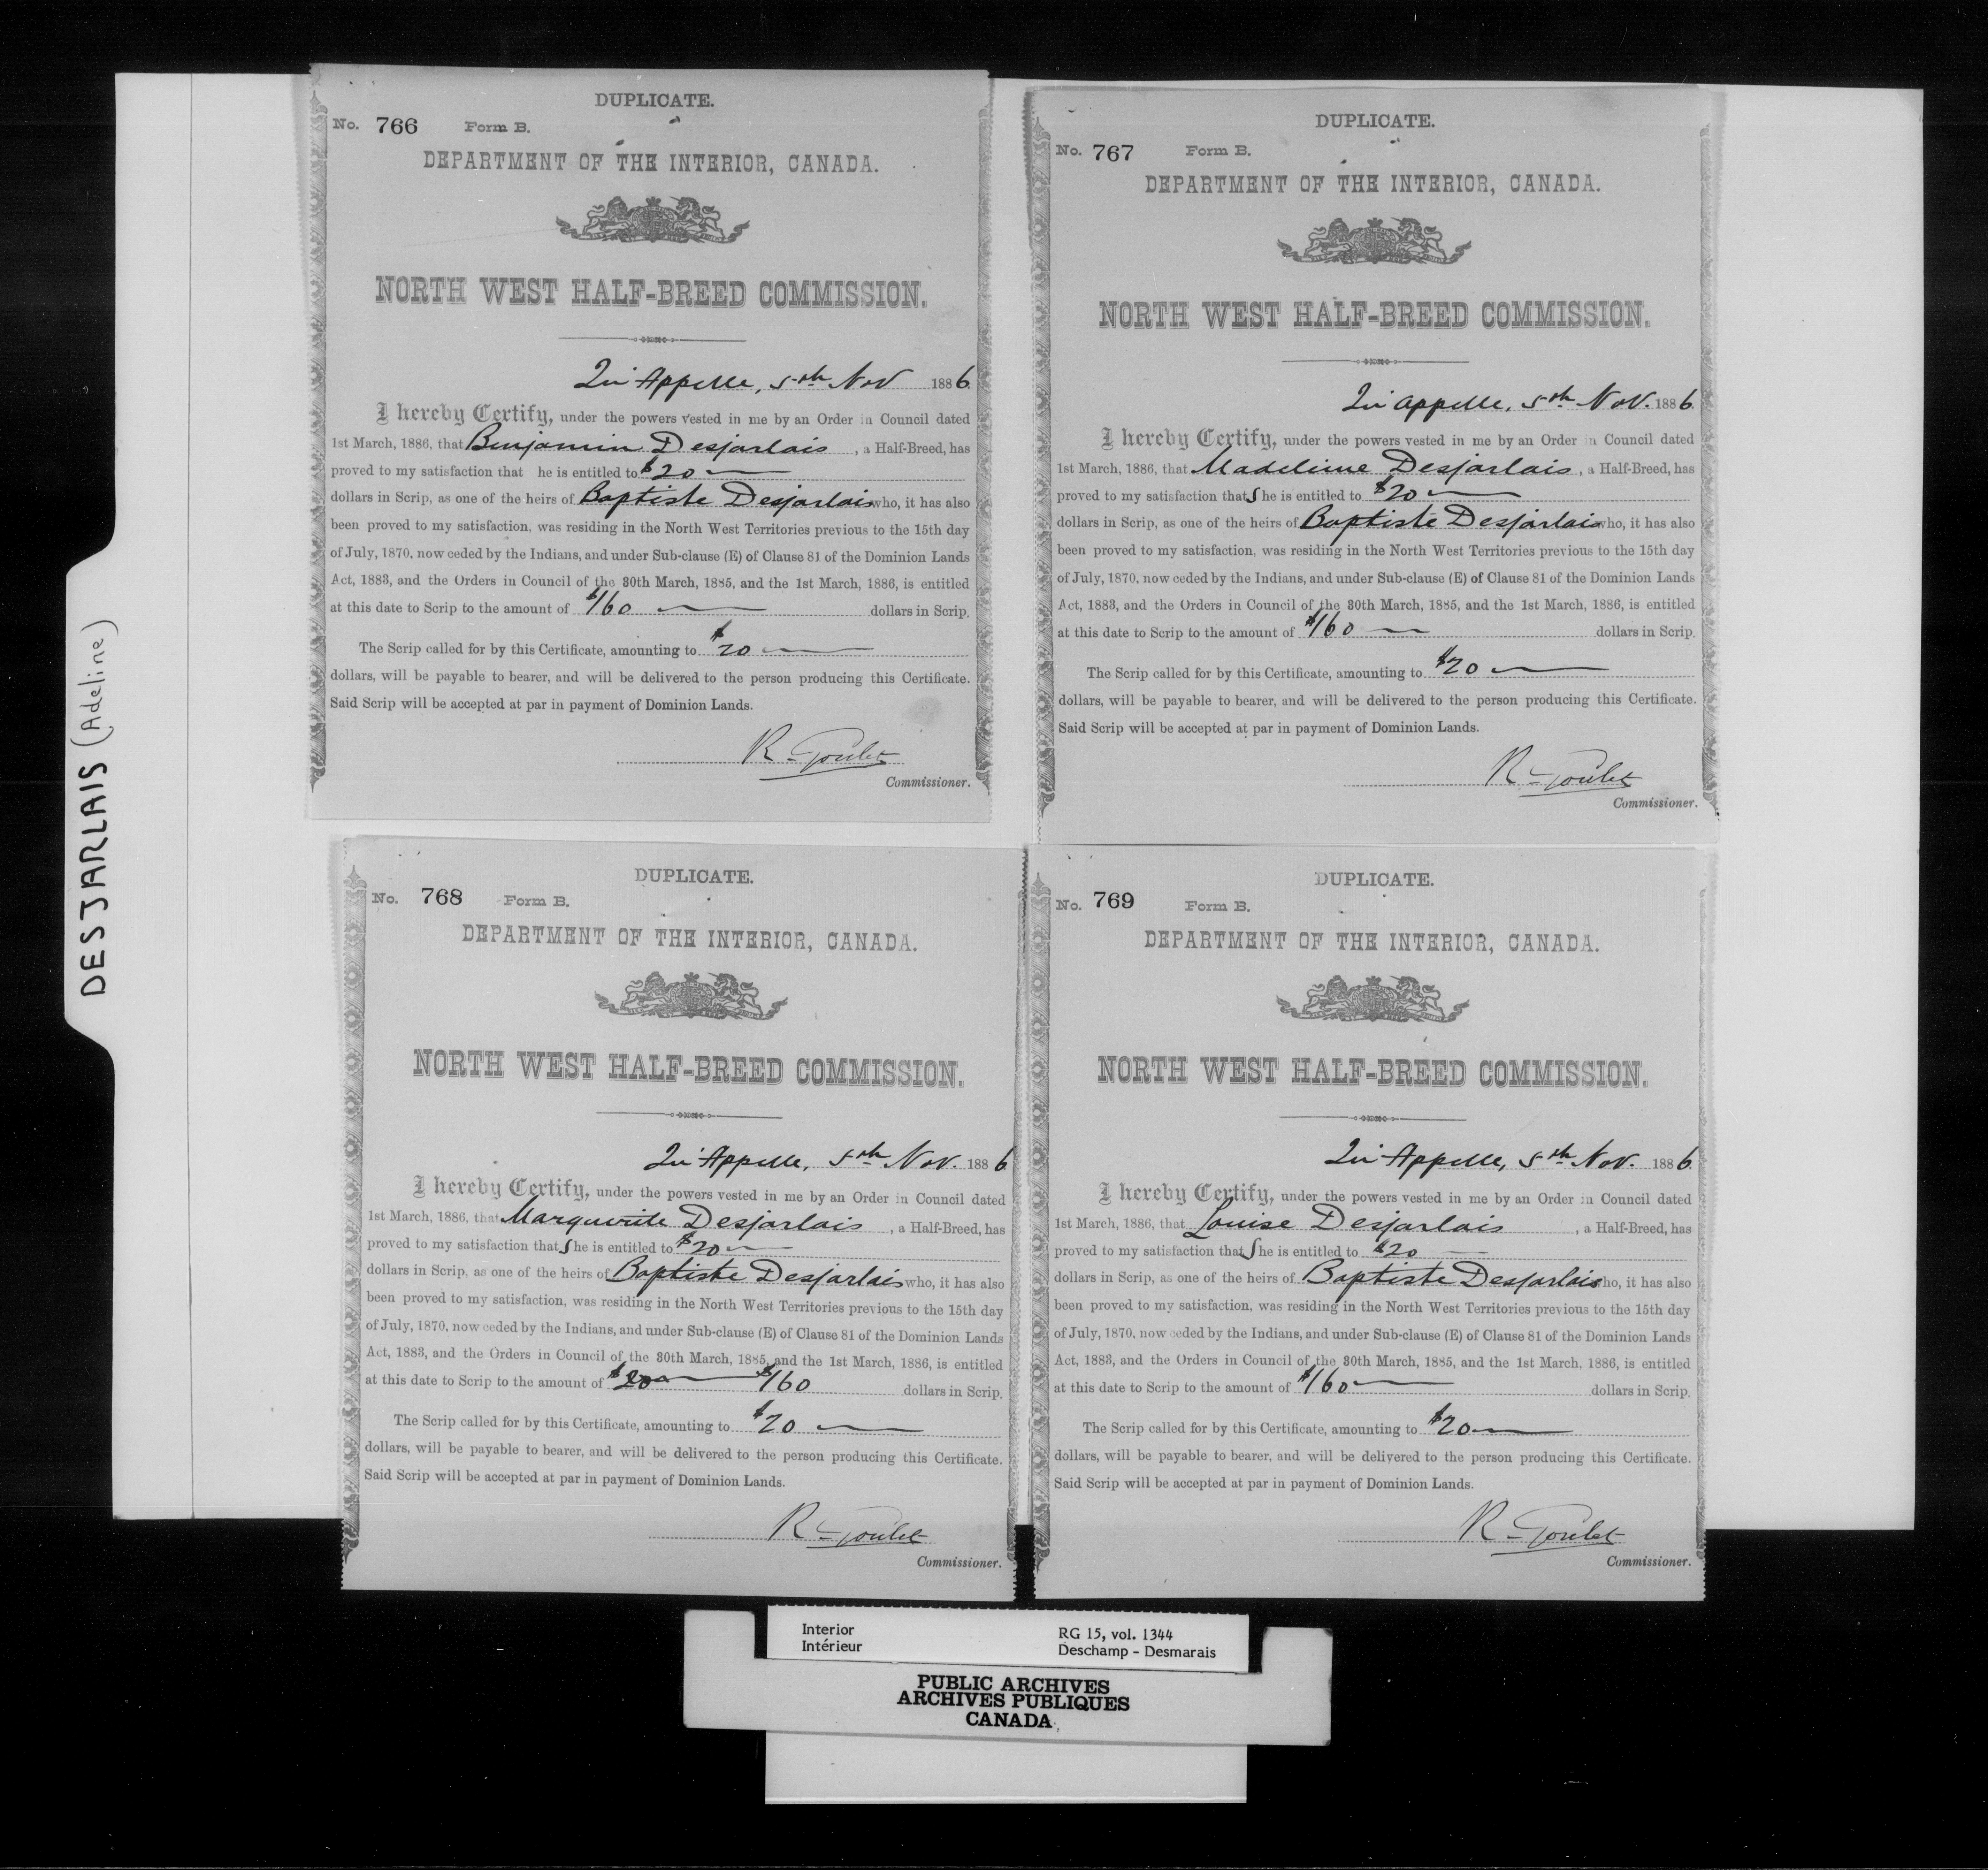 DESJARLAIS (Adeline)
DUPLICATE.
No. 766 Form B.
DEPARTMENT OF THE INTERIOR, CANADA.
NORTH WEST HALF-BREED COMMISSION.
Qu'Appelle, 5th Nov 1886.
I hereby Certify, under the powers vested in me by an Order in Council dated
1st March, 1886, that Benjamin Desjarlais, a Half-Breed, has
proved to my satisfaction that he is entitled to $20
dollars in Scrip, as one of the heirs of Baptiste Desjarlais who, it has also
been proved to my satisfaction, was residing in the North West Territories previous to the 15th day
of July, 1870, now ceded by the Indians, and under Sub-clause (E) of Clause 81 of the Dominion Lands
Act, 1883, and the Orders in Council of the 30th March, 1885, and the 1st March, 1886, is entitled
at this date to Scrip to the amount of $160 dollars in Scrip.
The Scrip called for by this Certificate, amounting to $20
dollars, will be payable to bearer, and will be delivered to the person producing this Certificate.
Said Scrip will be accepted at par in payment of Dominion Lands.
R. Goulet
Commissioner.
DUPLICATE.
No. 767 Form B.
DEPARTMENT OF THE INTERIOR, CANADA.
NORTH WEST HALF-BREED COMMISSION.
Qu'appelle, 5th Nov. 1886.
I hereby Certify, under the powers vested in me by an Order in Council dated
1st March, 1886, that Madeleine Desjarlais, a Half-Breed, has
proved to my satisfaction that She is entitled to $20
dollars in Scrip, as one of the heirs of Baptiste Desjarlais who, it has also
been proved to my satisfaction, was residing in the North West Territories previous to the 15th day
of July, 1870, now ceded by the Indians, and under Sub-clause (E) of Clause 81 of the Dominion Lands
Act, 1883, and the Orders in Council of the 30th March, 1885, and the 1st March, 1886, is entitled
at this date to Scrip to the amount of $160 dollars in Scrip.
The Scrip called for by this Certificate, amounting to $20
dollars, will be payable to bearer, and will be delivered to the person producing this Certificate.
Said Scrip will be accepted at par in payment of Dominion Lands.
R. Goulet
Commissioner.
DUPLICATE.
No. 768 Form B.
DEPARTMENT OF THE INTERIOR, CANADA.
NORTH WEST HALF-BREED COMMISSION.
Qu'Appelle, 5th Nov. 1886
I hereby Certify, under the powers vested in me by an Order in Council dated
1st March, 1886, that Marguerite Desjarlais, a Half-Breed, has
proved to my satisfaction that She is entitled to $20
dollars in Scrip, as one of the heirs of Baptiste Desjarlais who, it has also
been proved to my satisfaction, was residing in the North West Territories previous to the 15th day
of July, 1870, now ceded by the Indians, and under Sub-clause (E) of Clause 81 of the Dominion Lands
Act, 1883, and the Orders in Council of the 30th March, 1885, and the 1st March, 1886, is entitled
at this date to Scrip to the amount of $20 $160 dollars in Scrip.
The Scrip called for by this Certificate, amounting to $20
dollars, will be payable to bearer, and will be delivered to the person producing this Certificate.
Said Scrip will be accepted at par in payment of Dominion Lands.
R. Goulet
Commissioner.
DUPLICATE.
No. 769 Form B.
DEPARTMENT OF THE INTERIOR, CANADA.
NORTH WEST HALF-BREED COMMISSION.
Qu'Appelle, 5th Nov. 1886.
I hereby Certify, under the powers vested in me by an Order in Council dated
1st March, 1886, that Louise Desjarlais, a Half-Breed, has
proved to my satisfaction that She is entitled to $20
dollars in Scrip, as one of the heirs of Baptiste Desjarlais who, it has also
been proved to my satisfaction, was residing in the North West Territories previous to the 15th day
of July, 1870, now ceded by the Indians, and under Sub-clause (E) of Clause 81 of the Dominion Lands
Act, 1883, and the Orders in Council of the 30th March, 1885, and the 1st March, 1886, is entitled
at this date to Scrip to the amount of $160 dollars in Scrip.
The Scrip called for by this Certificate, amounting to $20
dollars, will be payable to bearer, and will be delivered to the person producing this Certificate.
Said Scrip will be accepted at par in payment of Dominion Lands.
R. Goulet
Commissioner.
Interior RG 15, vol. 1344
Intérieur Deschamp - Desmarais
PUBLIC ARCHIVES
ARCHIVES PUBLIQUES
CANADA